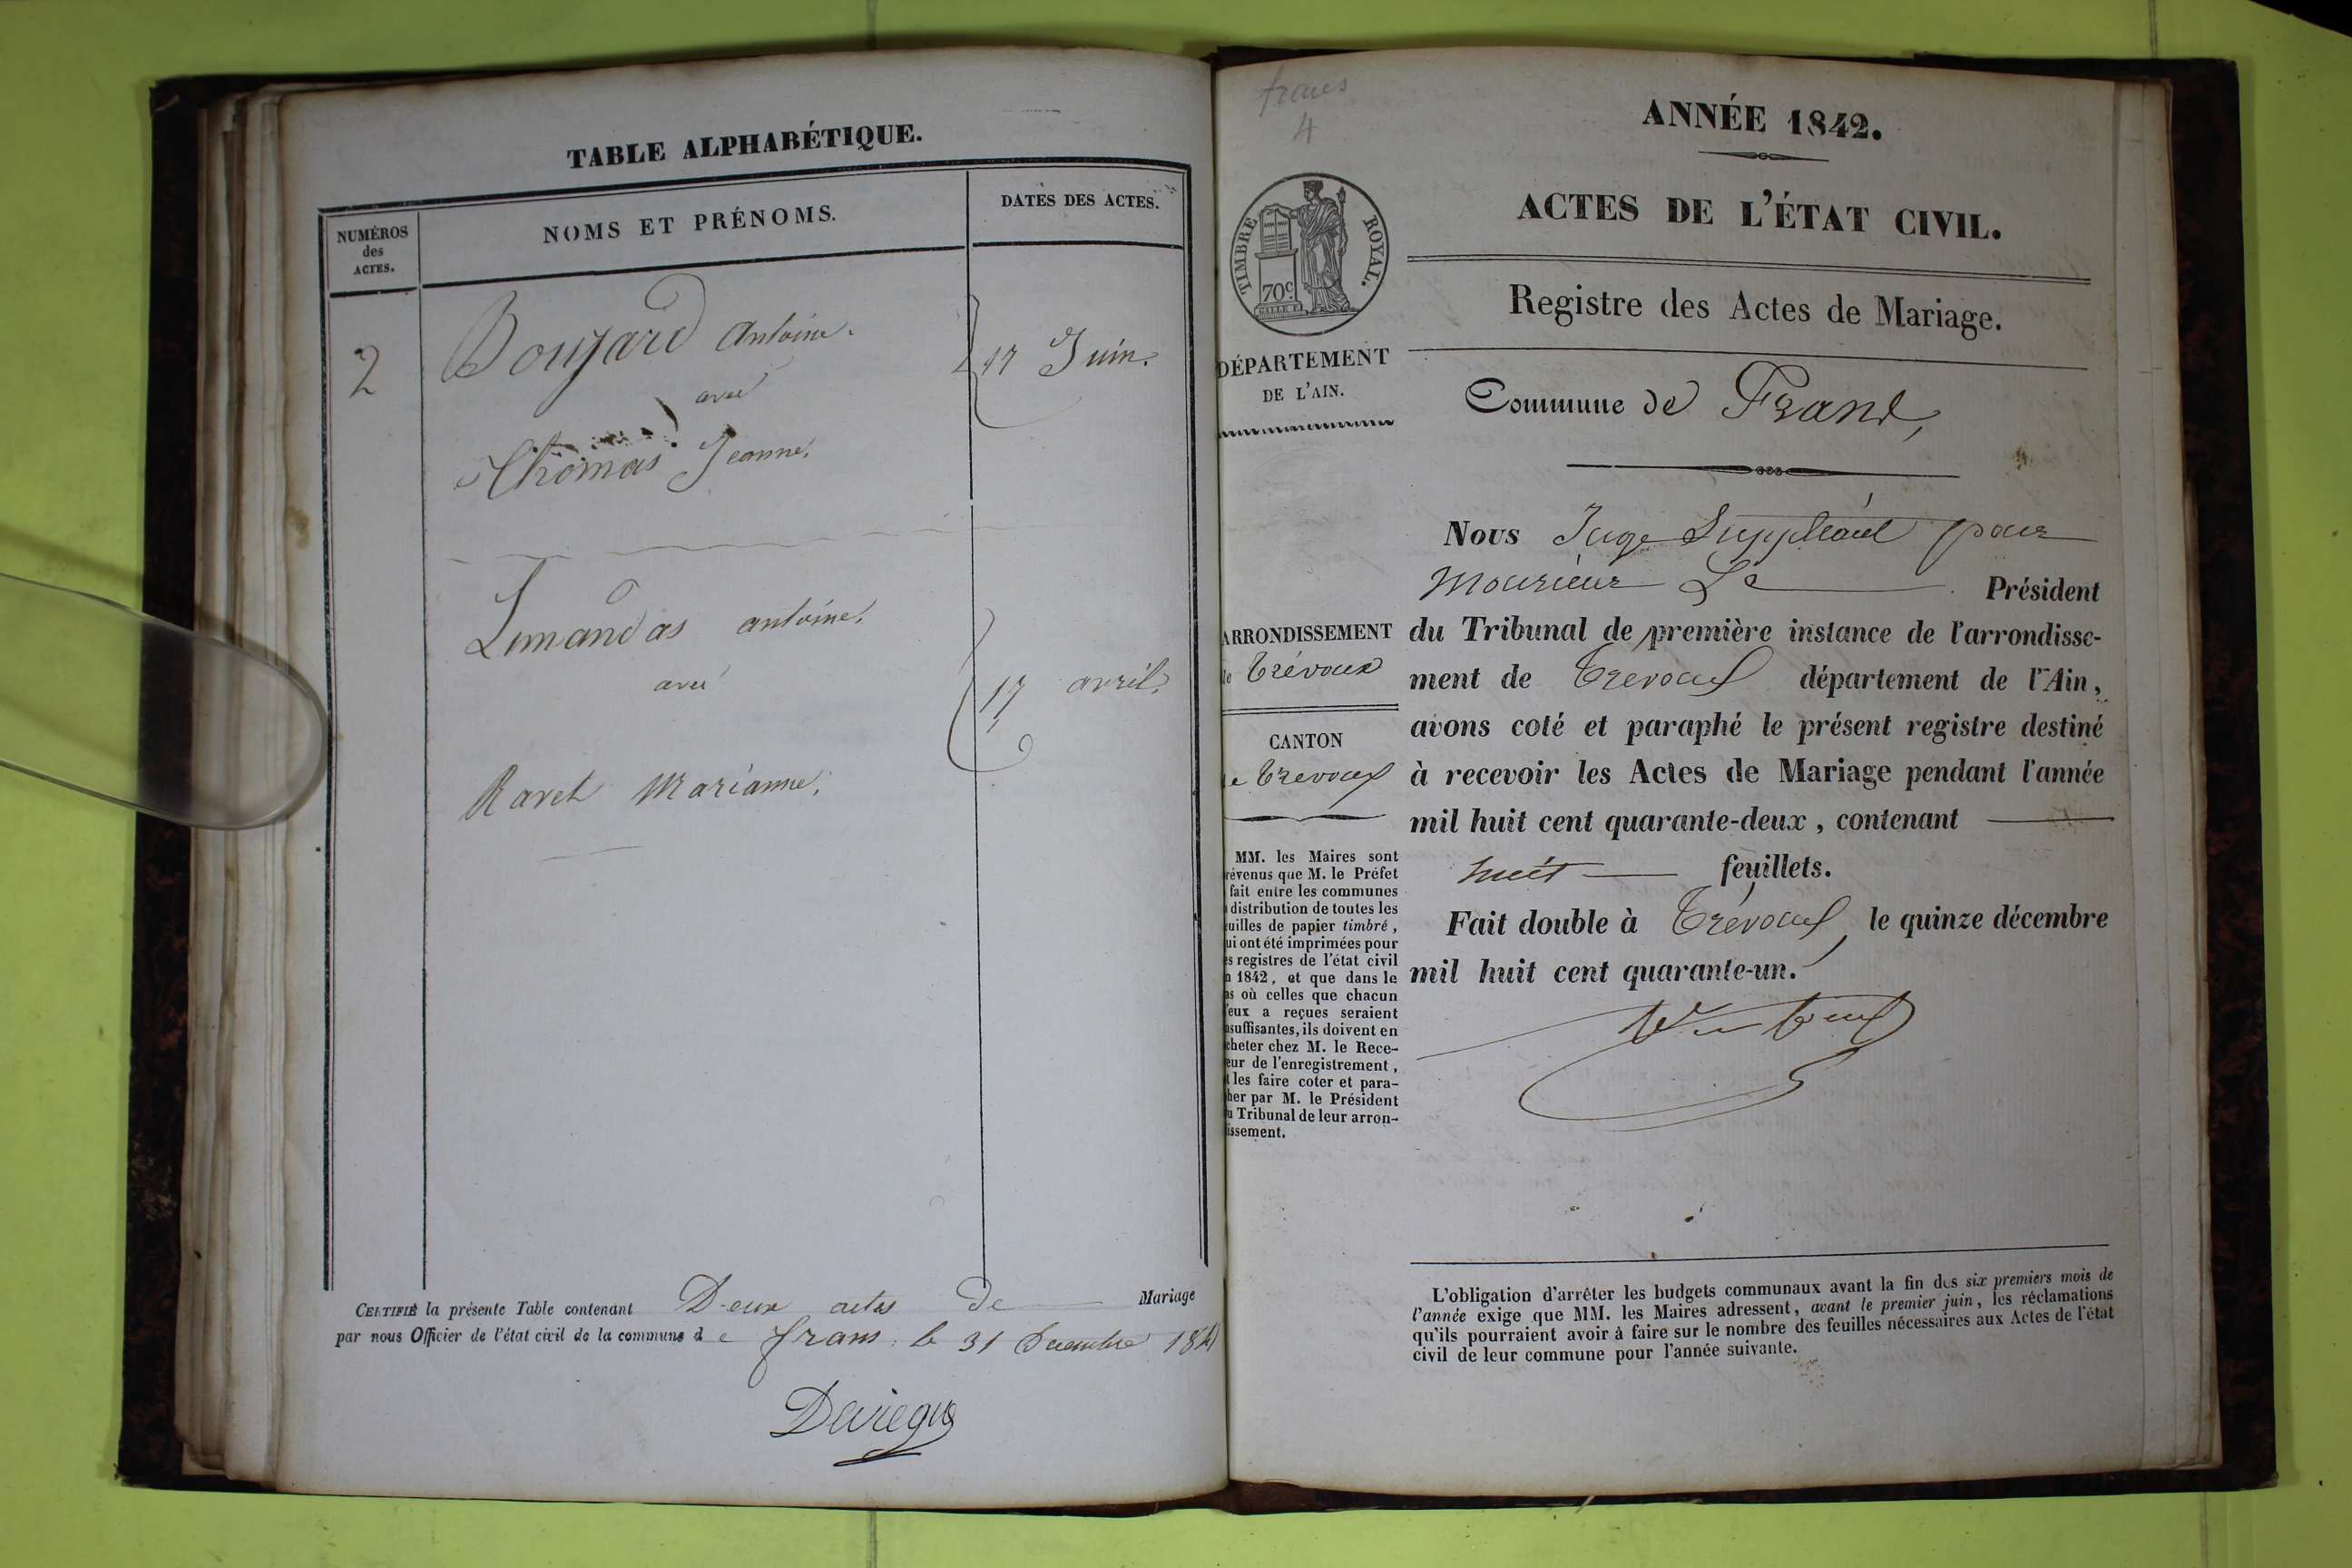 TABLE ALPHABÉTIQUE.
NUMÉROS
des
ACTES.
NOMS ET PRÉNOMS.
DATES DES ACTES.
2
Boujard Antoine.
avec
17 Juin.
Thomas Jeanne.
Limandas antoine.
avec
17 avril.
Ravet Marianne.
CERTIFIÉ la présente Table contenant Deux actes de Mariage
par nous Officier de l'état civil de la commune de frans, le 31 Décembre 1841
frans
4
TIMBRE ROYAL.
70c
DÉPARTEMENT
DE L'AIN.
ARRONDISSEMENT
de Trévoux
CANTON
de Trevoux
MM. les Maires sont
révenus que M. le Préfet
fait entre les communes
distribution de toutes les
uilles de papier timbré,
ui ont été imprimées pour
es registres de l'état civil
n 1842, et que dans le
as où celles que chacun
'eux a reçues seraient
nsuffisantes, ils doivent en
cheter chez M. le Rece-
eur de l'enregistrement,
t les faire coter et para-
her par M. le Président
u Tribunal de leur arron-
issement.
ANNÉE 1842.
ACTES DE L'ÉTAT CIVIL.
Registre des Actes de Mariage.
Commune de Frans,
Nous Juge Suppléant pour
Monsieur Le Président
du Tribunal de première instance de l'arrondisse-
ment de Trevoux département de l'Ain,
avons coté et paraphé le présent registre destiné
à recevoir les Actes de Mariage pendant l'année
mil huit cent quarante-deux, contenant
huit feuillets.
Fait double à Trévoux, le quinze décembre
mil huit cent quarante-un.
L'obligation d'arrêter les budgets communaux avant la fin des six premiers mois de
l'année exige que MM. les Maires adressent, avant le premier juin, les réclamations
qu'ils pourraient avoir à faire sur le nombre des feuilles nécessaires aux Actes de l'état
civil de leur commune pour l'année suivante.